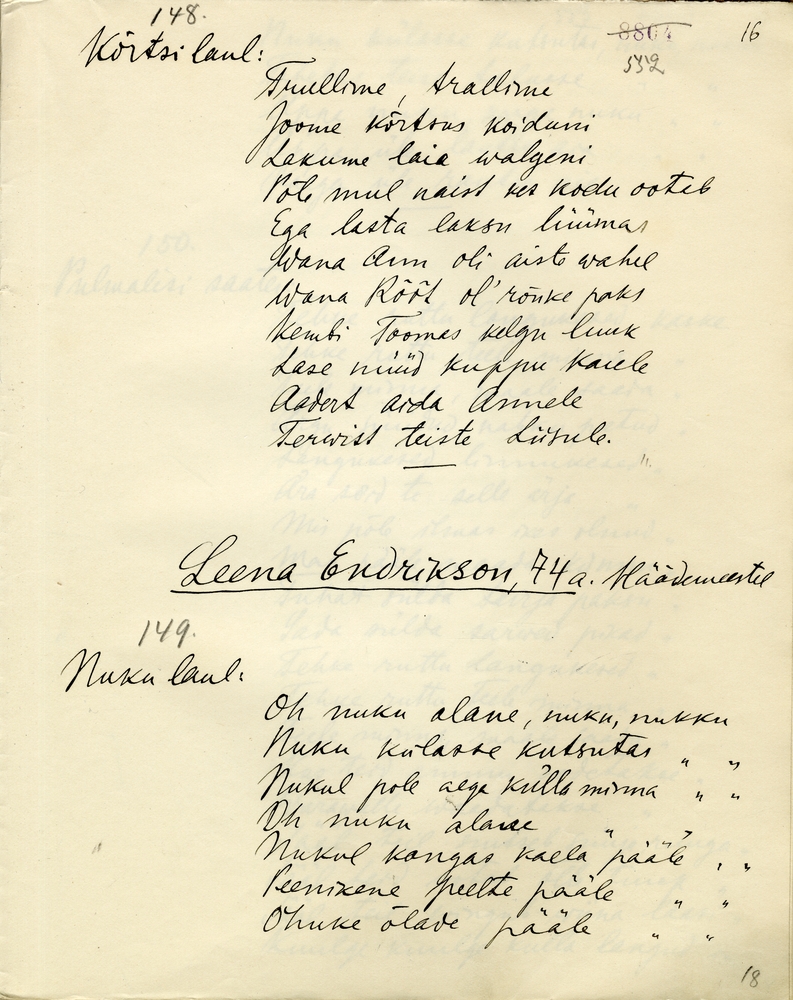 148.
8804
16
552
Kõrtsi laul:
Trullime, trallime
Joome kõrtsus koiduni
Lakume laia walgeni
Põle mul naist kes kodu ooteb
Ega lasta laksu lüümas
Wana Ann oli aiste wahel
Wana Rõõt ol' rõuke paks
Kembi Toomas kelgu luuk
Lase nüüd kuppu Kaiele
Aadert aida Annele
Terwist teiste Liisule.
Leena Endrikson, 74 a. Häädemeestel
149.
Nuku laul:
Oh nuku alane, nuku, nukku
Nuku külasse kutsutas " "
Nukul pole aega külla minna " "
Oh nuku alane " "
Nukul kangas kaela pääle " "
Peenikene peelte pääle " "
Õhuke õlade pääle " "
18